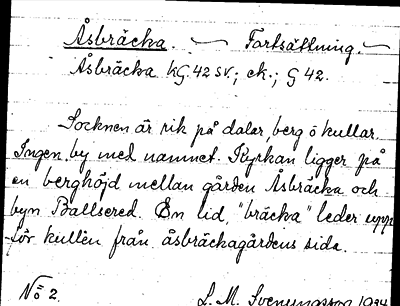 Åsbräcka. — Fortsättning. —
Åsbräcka kG. 42 sv.; ek.; G 42.
Socknen är rik på dalar berg ö kullar.
Ingen by med namnet. Kyrkan ligger på
en berghöjd mellan gården Åsbräcka och
byn Ballsered. En lid, "bräcka" leder upp
för kullen från åsbräckagårdens sida.
No 2. L. M. Svenungsson 1934